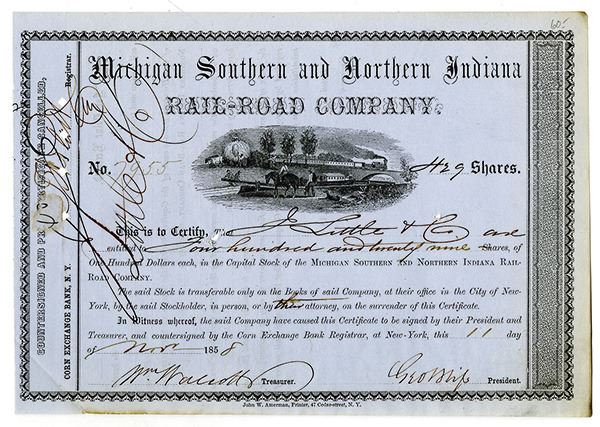 60-
Michigan Southern and Northern Indiana
RAIL-ROAD COMPANY.
No. 7955
429 Shares.
This is to Certify, That J Little & Co are
entitled to Four hundred and twenty nine Shares, of
One Hundred Dollars each, in the Capital Stock of the Michigan Southern and Northern Indiana Rail-
Road Company.
The said Stock is transferable only on the Books of said Company, at their office in the City of New-
York, by the said Stockholder, in person, or by their attorney, on the surrender of this Certificate.
In Witness whereof, the said Company have caused this Certificate to be signed by their President and
Treasurer, and countersigned by the Corn Exchange Bank Registrar, at New-York, this 11 day
of Nov 1858
Wm Walcott Treasurer. Geo Bliss President.
John W. Amerman, Printer, 47 Cedar-street, N. Y.
COUNTERSIGNED AND CANCELLED,
CORN EXCHANGE BANK, N. Y.
Registrar.
J Little & Co